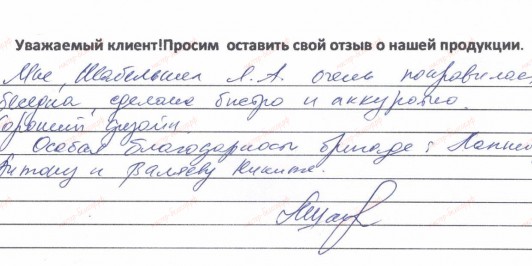 Уважаемый клиент!Просим оставить свой отзыв о нашей продукции.
Мне, Л.А. очень понравилась
беседка, сделана быстро и аккуратно.
Хороший дизайн.
Особая благодарность бригаде:
Антону и Валееву Никите.